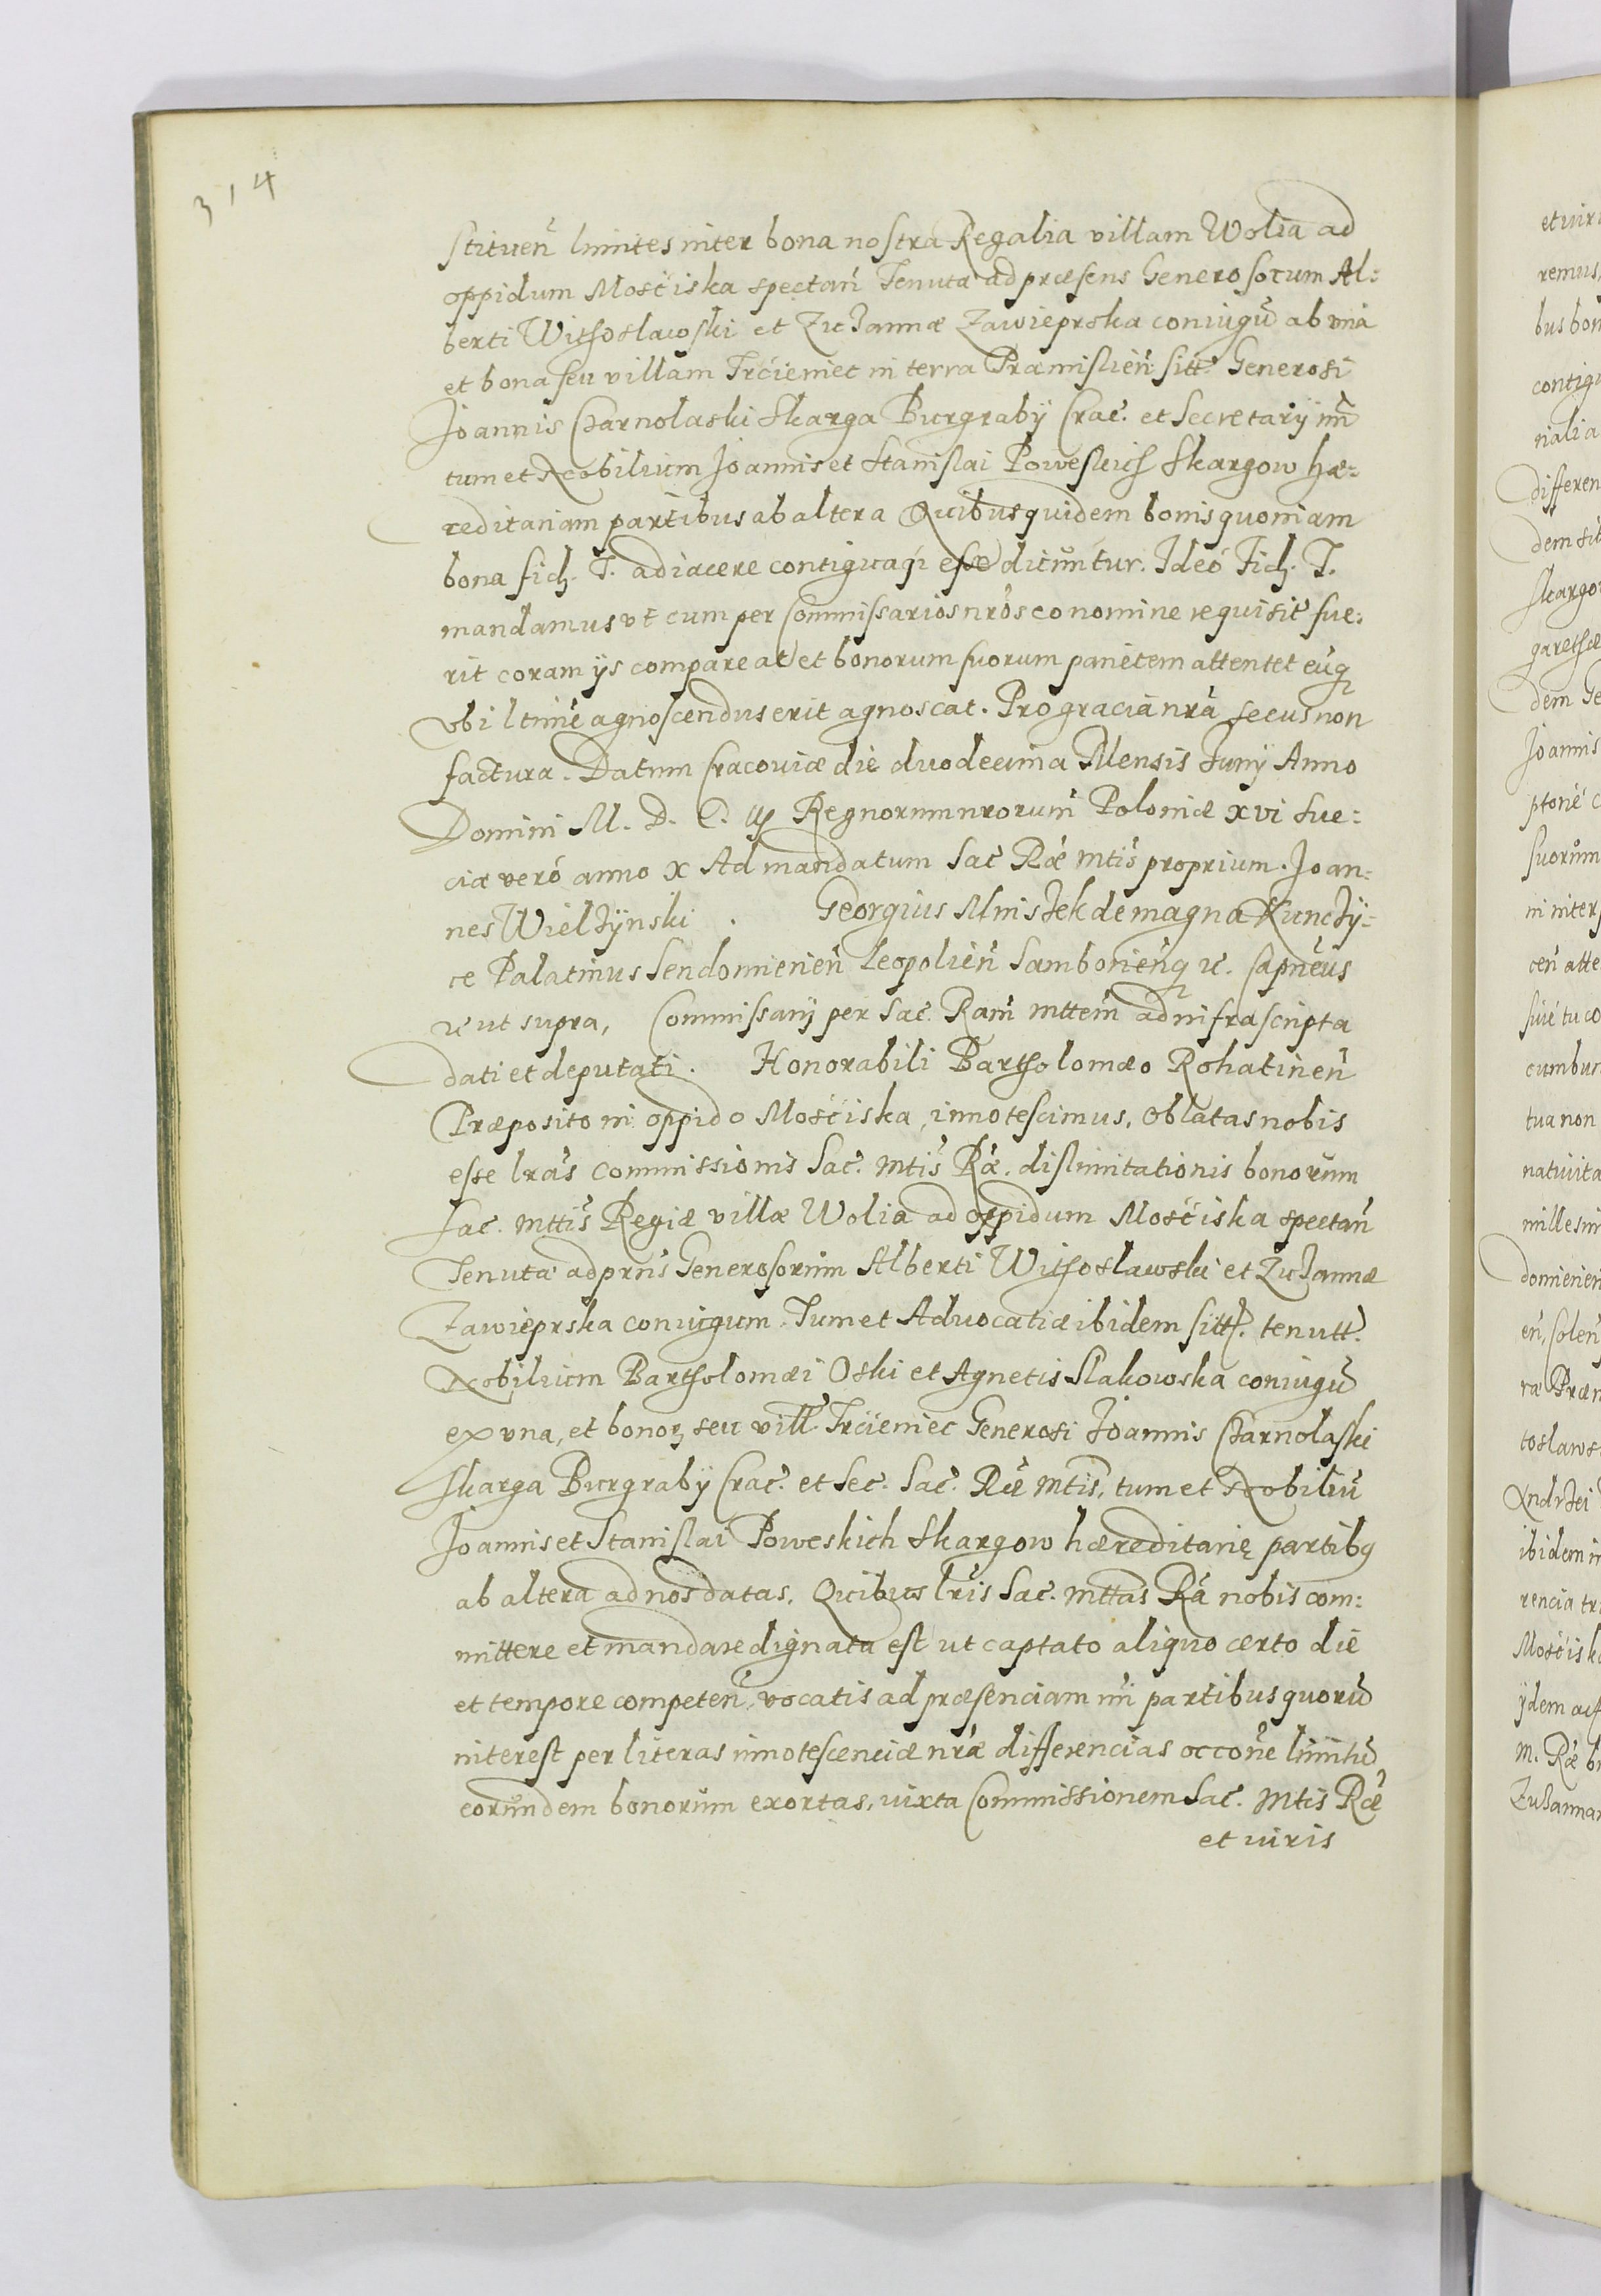 314
stituen̄ limites inter bona nostra Regalia villam Wolia ad
oppidum Mośćiska spectan̄ Tenutæ ad præsens Generosorum Al:
berti Withoslawski et Zuzannæ Zawieprska coniugū ab vna
et bona seu villam Trćieniec in terra Præmislien̄ sitt. Generosi
Joannis Charnolaski Skarga Burgrabÿ Crac. et Secretarÿ nri
tum et Nobilium Joannis et Stanislai Poweskich Skargow hæ:
reditariam partibus ab altera Quibus quidem bonis quoniam
bona fid. T. adiacere contiguaq esse dicuntur. Ideó Fid. T.
mandamus vt cum per Commissarios nr̄os eo nomine requisit. fue:
rit coram ijs compareat et bonorum suorum parietem attentet eūq
vbi ltimē agnoscendus erit agnoscat. Pro gracia nrā secus non
factura. Datum Cracoviæ die duodecima Mensis Junÿ Anno
Domini M. D. C. iij Regnorum nrorum Poloniæ xvi Sue:
ciæ veró anno X Ad mandatum Sac Ræ mtis proprium. Joan:
nes Wielżÿnski . Georgius Mniszek de magna Kunczÿ:
ce Palatinus Sendomirien̄ Leopolien̄ Samborien̄q &. Capneus
& ut supra, Commissarij per Sac. Ram̄ mttem̄ ad infrascripta
dati et deputati. Honorabili Bartholomæo Rohatinen̄
Præposito in oppido Mośćiska, innotescimus, oblatas nobis
esse lrās commissionis Sac. mtis Ræ. dislimitationis bonorum
Sac. mttis Regiæ villæ Wolia ad oppidum Mośćiska spectan̄
Tenutæ ad prns̄ Generosorum Alberti Withoslawski et Zuzannæ
Zawieprska coniugum. Tum et Advocatiæ ibidem sitt. tenutt.
Nobilium Bartholomæi Oski et Agnetis Slakowska coniugū
ex vna, et bonoꝝ seu vill Trćieniec Generosi Joannis Charnolaski
Skarga Burgrabÿ Crac. et Sec. Sac. Ræ mtis, tum et Nobiliū
Joannis et Stanislai Poweskich Skargow hæreditarię partibꝰ
ab altera ad nos datas. Quibus lris Sac. mttas Rā nobis com:
mittere et mandare dignata est ut captato aliquo certo die
et tempore competen̄, vocatis ad præsenciam nri partibus quorū
interest per literas innotescenciæ nræ differencias occone limitū
eorundem bonorum exortas, iuxta Commissionem Sac. mtis Ræ
et iuris